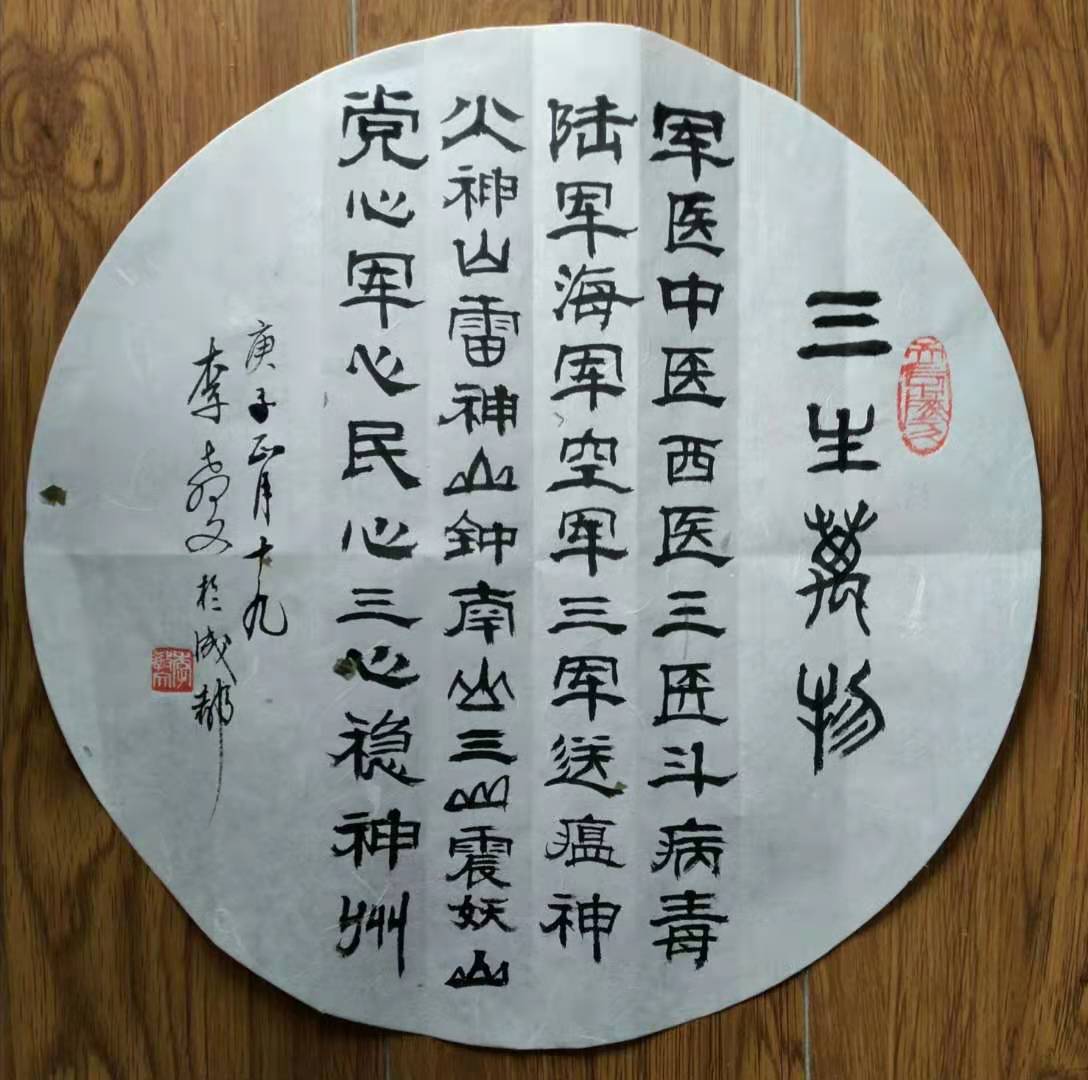 三生萬物
军医中医西医三医斗病毒
陆军海军空军三军送瘟神
火神山雷神山钟南山三山震妖山
党心军心民心三心稳神州
庚子正月十九
李 文於成都